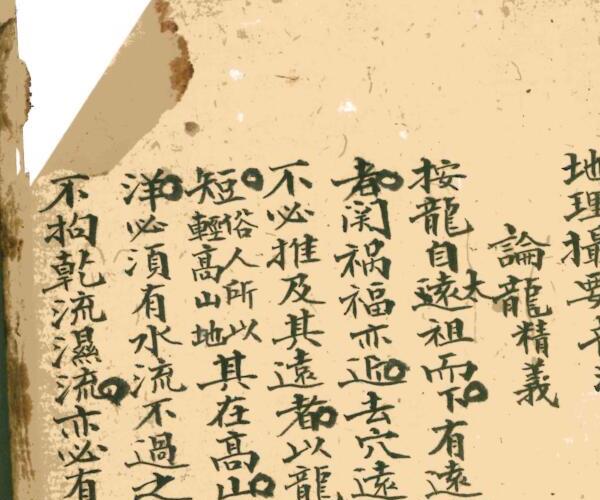 地理撮要
論龍精義
按龍自遠太祖而下有遠
者関禍福亦近去穴遠
不必推及其遠者以龍
短俗人所以輕高山地其在高山
洋必須有水流不過之
不拘乾流濕流亦必有